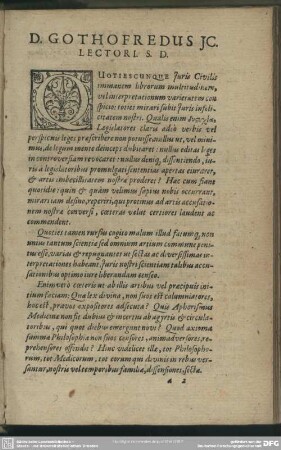 D. GOTHOFREDUS JC.
LECTORI. S. D.
QUOTIESCUNQUE Juris Civilis
immanem librorum multitudinem,
vel interpretationum varietatem con
spicor: toties mirari subit Juris infeli-
citatem nostri. Qualis enim
Legislatores claris adeò verbis vel
perspicuis leges præscribere non potuisse: nullus ut, vel mini-
mus, de legum mente deinceps dubitaret: nullus editas leges
in controversiam revocaret: nullus deniq; dissentiendo, inju-
ria à legislatoribus promulgati sententias aperta curaret,
& artis imbecillitatem nostra proderet? Hæc cum fiant
quotidie: quin & quàm velimus sæpius nobis occurrant,
mirari jam desino, repertiri, qui protinus ad artis accusatio-
nem nostra conversi, cæteras velut certiores laudent ac
commendent.
Quoties tamen rursus cogito malum illud facinus, non
unius tantum scientia sed omnium artium commune peni-
tus esse, varias & repugnantes ut sectas ac diversissimas in-
terpretationes habeant: Juris nostri scientiam talibus accu-
sationibus optimo jure liberandam censeo.
Enimverò cæteris in aliis artibus vel præcipuis insti-
tutum secum: Quæ lex divina, non suos est calumniatores,
hoc est, pravos expositores adsecuta? Quis Aphorismus
Medicinæ non sic dubius & incertus ab agyrtis & circula-
toribus, qui quot diebus emergunt novi? Quod axioma
summa Philosophia non suos censores, animadversores, re-
prehensores offendit? Hinc videlicet illæ, tot Philosopho-
rum, tot Medicorum, tot eorum qui divinis in rebus ver-
santur, nostris vel temporibus familia, dissensiones, secta.
a 2